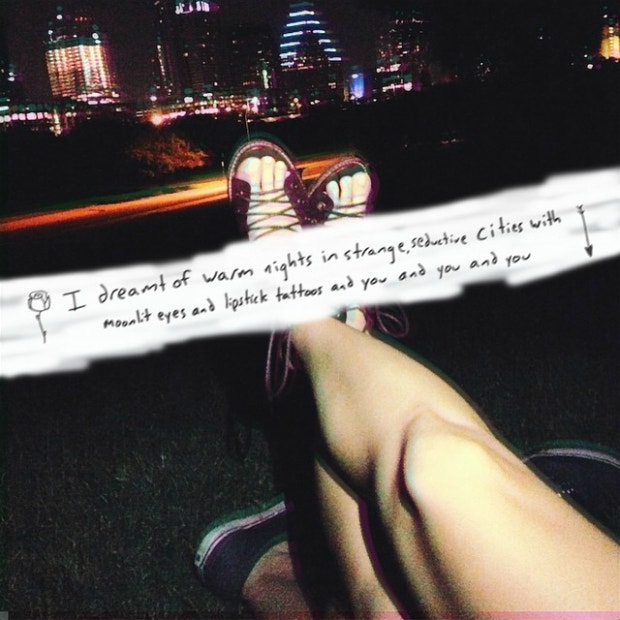 I dreamt of warm nights in strange, seductive Cities with
moonlit eyes and lipstick tattoos and you and you and you